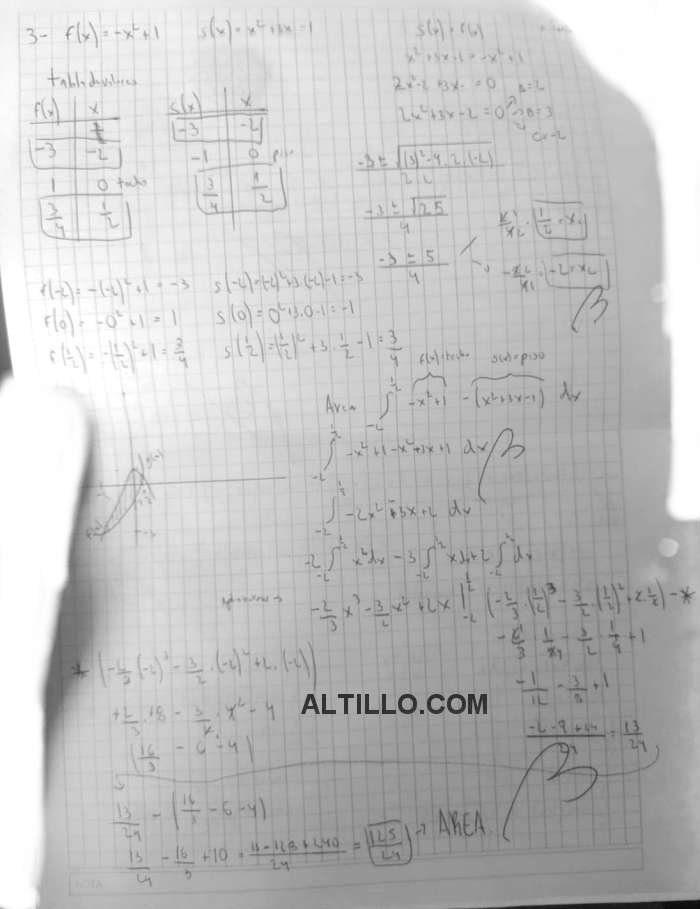 3- f(x) = -x²+1 s(x) = x²+3x-1
s(x) = f(x)
x²+3x-1 = -x²+1
2x²-2+3x = 0 A=2
2x²+3x-2 = 0 B=3
C=-2
tabla de valores
f(x) | x
-3 | -2
1 | 0 techo
3/4 | 1/2
s(x) | x
-3 | -2
-1 | 0 piso
3/4 | 1/2
-3 ± √((3)²-4.2.(-2))
2.2
-3 ± √25
4
-3 ± 5
4
1/2 = x₁
-2 = x₂
f(-2) = -(-2)²+1 = -3 s(-2) = (-2)²+3.(-2)-1 = -3
f(0) = -0²+1 = 1 s(0) = 0²+3.0-1 = -1
f(1/2) = -(1/2)²+1 = 3/4 s(1/2) = (1/2)²+3.1/2-1 = 3/4
f(x)=techo s(x)=piso
Area ∫ -2 1/2 -x²+1 -(x²+3x-1) dx
∫ -2 1/2 -x²+1-x²+3x+1 dx
∫ -2 1/2 -2x²-3x+2 dx
-2 ∫ -2 1/2 x²dx - 3 ∫ -2 1/2 xdx+2 ∫ -2 1/2 dx
-2/3 x³ - 3/2 x² + 2x | -2 1/2 (-2/3.(1/2)³ - 3/2.(1/2)²+2.1/2) - *
* (-2/3(-2)³ - 3/2.(-2)²+2.(-2))
-1/12 - 3/8 + 1
+2/3.+8 - 3/2.2² - 4
-2-9+24/24 = 13/24
(16/3 - 6 - 4)
13/24 - (16/3 - 6 - 4)
13/24 - 16/3 + 10 = 13-128+240/24 = 125/24 → AREA
ALTILLO.COM